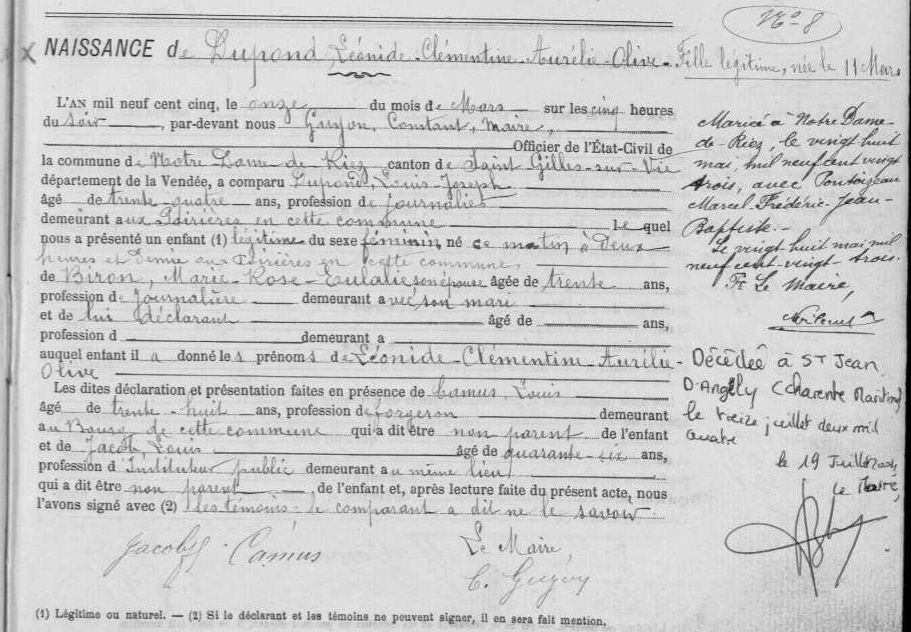 Nº 8
NAISSANCE de Dupond, Léonide-Clémentine-Aurélie-Olive - Fille légitime, née le 11 Mars
L'AN mil neuf cent cinq, le onze du mois de Mars sur les cinq heures
du soir, par-devant nous Guyon, Constant, Maire,
Officier de l'État-Civil de
la commune de Notre Dame de Riez canton de Saint-Gilles-sur-Vie
département de la Vendée, a comparu Dupond, Louis-Joseph
âgé de trente-quatre ans, profession de journalier
demeurant aux Poirières en cette commune lequel
nous a présenté un enfant (1) légitime du sexe féminin né ce matin à Deux
heures et Demie aux Poirières en cette commune,
de Biron, Marie-Rose-Eulalie son épouse âgée de trente ans,
profession de Journalière demeurant avec son mari
et de lui déclarant âgé de ans,
profession d demeurant a
auquel enfant il a donné les prénoms de Léonide-Clémentine Aurélie-
Olive
Les dites déclaration et présentation faites en présence de Camus, Louis
âgé de trente-huit ans, profession de forgeron demeurant
au Bourg de cette commune qui a dit être non parent de l'enfant
et de Jacob, Louis âgé de quarante-six ans,
profession d'Instituteur public demeurant au même lieu
qui a dit être non parent, de l'enfant et, après lecture faite du présent acte, nous
l'avons signé avec (2) les témoins: le comparant a dit ne le savoir.
Jacob Camus
Le Maire,
(1) Légitime ou naturel. — (2) Si le déclarant et les témoins ne peuvent signer, il en sera fait mention.
Mariée à Notre Dame
de-Riez, le vingt huit
mai, mil neuf cent vingt
trois, avec Pontoizeau
Marcel-Frédéric-Jean-
Baptiste.-
Le vingt huit mai mil
neuf-cent-vingt trois.
Le Maire,
Décédée à ST Jean
D'Angély (Charente Maritime)
le treize juillet deux mil
quatre
le 19 Juillet 2004
Le Maire,